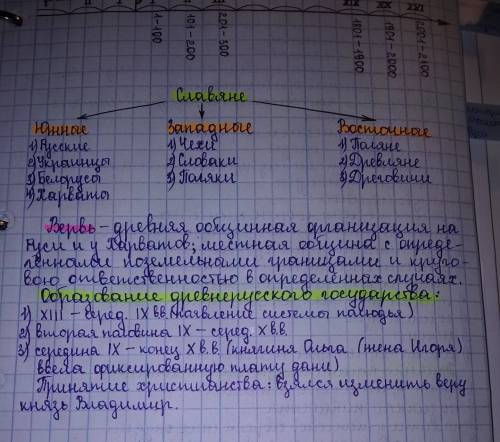 I II III XIX XX XXI
1-100 101-200 201-300 1801-1900 1901-2000 2001-2100
Славяне
Южные Западные Восточные
1) Русские 1) Чехи 1) Поляне
2) Украинцы 2) Словаки 2) Древляне
3) Белорусы 3) Поляки 3) Дреговичи
4) Харваты
Вервь - древняя общинная организация на
Руси и у Харватов; местная община с опреде-
ленными поземельными границами и круго-
вою ответственностью в определённых случаях.
Образование древнерусского государства:
1) XIII - серед. IX вв. (появление системы полюдья)
2) вторая половина IX - серед. X вв.
3) середина IX - конец X в.в. (княгиня Ольга (жена Игоря)
ввела фиксированную плату дани)
Принятие христианства: взялся изменить веру
князь Владимир.